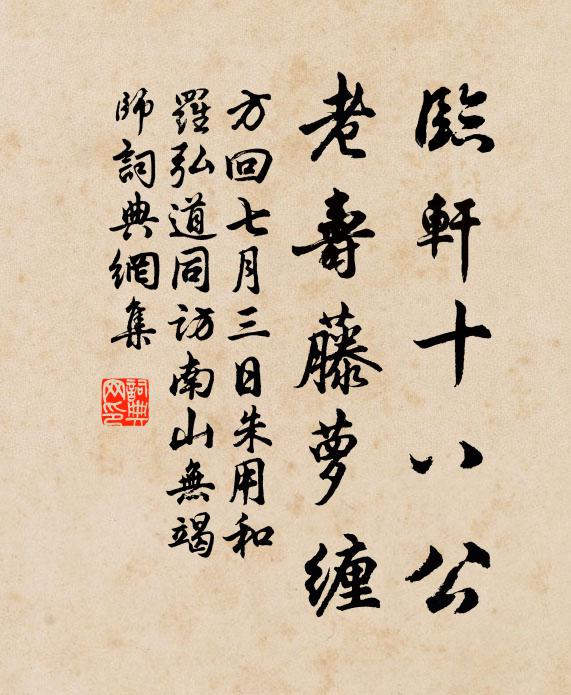 臨軒十八公
老壽藤萝纏
方回七月三日朱用和
羅弘道同访南山無竭
師詞典網集
詞典
网印